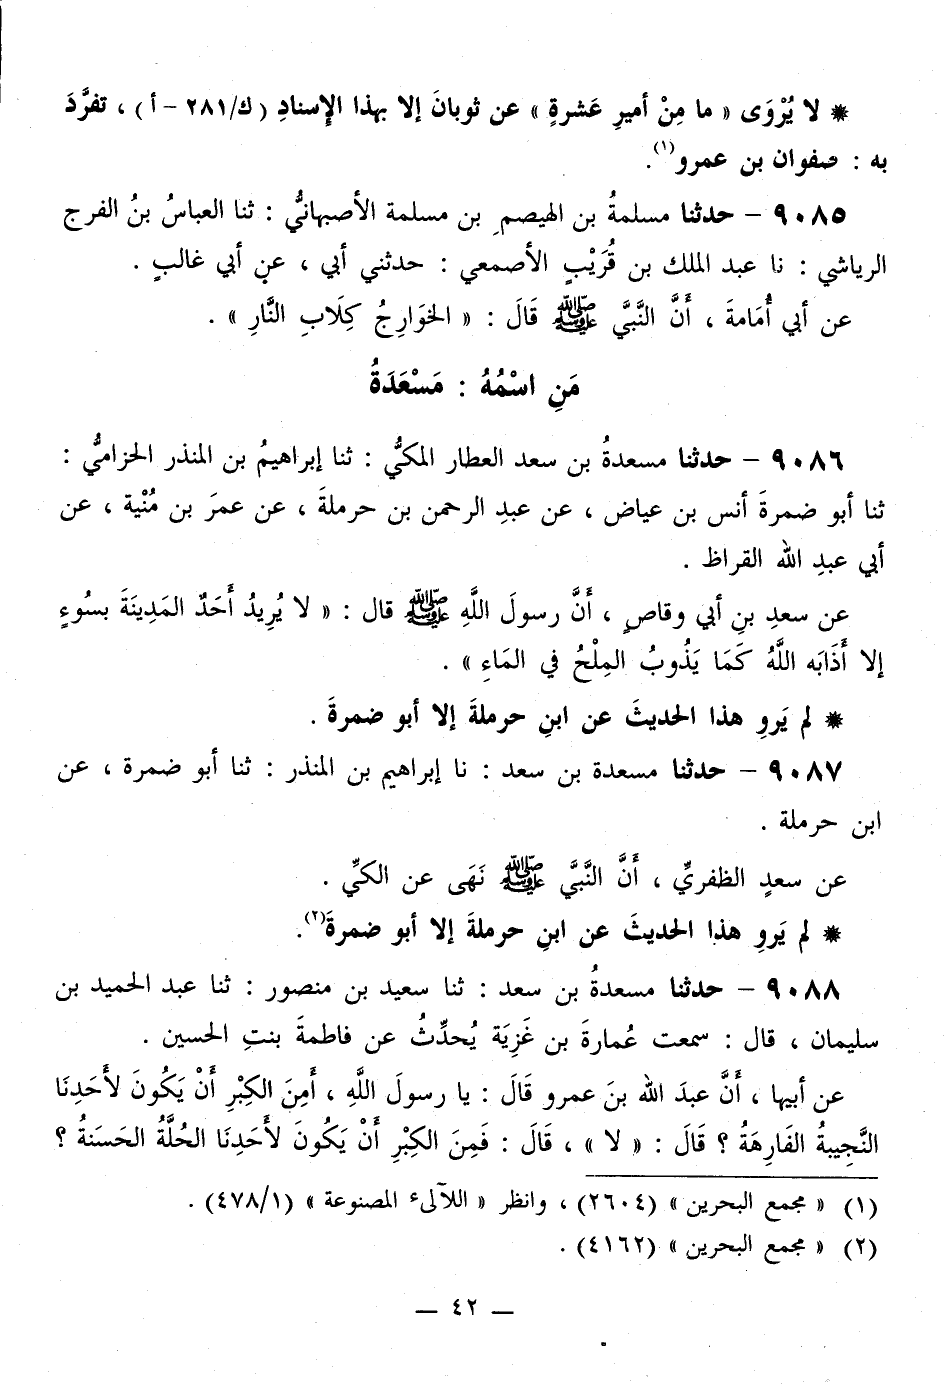 * لا يُرْوَى « ما مِنْ أميرِ عَشرةٍ » عن ثوبانَ إلا بهذا الإسنادِ (ك/٢٨١ - أ) ، تفرَّدَ
به : صفوان بن عمرو(١).
٩٠٨٥ - حدثنا مسلمةُ بن الهيصمِ بن مسلمة الأصبهانيُّ : ثنا العباسُ بنُ الفرج
الرياشي : نا عبد الملك بن قُرَيْبٍ الأصمعي : حدثني أبي ، عن أبي غالبٍ .
عن أبي أُمَامةَ ، أَنَّ النَّبيَّ ﷺ قَالَ : « الخوَارِجُ كِلَابِ النَّارِ » .
مَنِ اسْمُهُ : مَسْعَدَةُ
٩٠٨٦ - حدثنا مسعدةُ بن سعد العطار المكيُّ : ثنا إبراهيمُ بن المنذر الحزاميُّ :
ثنا أبو ضمرةَ أنس بن عياض ، عن عبدِ الرحمن بن حرملةَ ، عن عمرَ بن مُنْية ، عن
أبي عبدِ الله القراظ .
عن سعدِ بنِ أبي وقاصٍ ، أَنَّ رسولَ اللَّهِ ﷺ قال : « لا يُرِيدُ أَحَدٌ المَدِينَةَ بسُوءٍ
إلا أَذَابَه اللَّهُ كَمَا يَذُوبُ المِلْحُ في المَاءِ » .
* لم يَروِ هذا الحديثَ عن ابنِ حرملةَ إلا أبو ضمرةَ .
٩٠٨٧ - حدثنا مسعدة بن سعد : نا إبراهيم بن المنذر : ثنا أبو ضمرة ، عن
ابن حرملة .
عن سعدٍ الظفريِّ ، أَنَّ النَّبيَّ ﷺ نَهَى عن الكيِّ .
* لم يَروِ هذا الحديثَ عن ابنِ حرملةَ إلا أبو ضمرةَ(٢).
٩٠٨٨ - حدثنا مسعدةُ بن سعد : ثنا سعيد بن منصور : ثنا عبد الحميد بن
سليمان ، قال : سمعت عُمارةَ بن غَزِيَة يُحدِّثُ عن فاطمةَ بنتِ الحسين .
عن أبيها ، أَنَّ عبدَ الله بنَ عمرو قَالَ : يا رسولَ اللَّهِ ، أَمِنَ الكِبْرِ أَنْ يَكُونَ لأَحَدِنَا
النَّجِيبةُ الفَارِهَةُ ؟ قَالَ : « لا » ، قَالَ : فَمِنَ الكِبْرِ أَنْ يَكُونَ لأَحَدِنَا الحُلَّةُ الحَسَنةُ ؟
(١) « مجمع البحرين » (٢٦٠٤) ، وانظر « اللآلىء المصنوعة » (٤٧٨/١) .
(٢) « مجمع البحرين » (٤١٦٢) .
— ٤٢ —